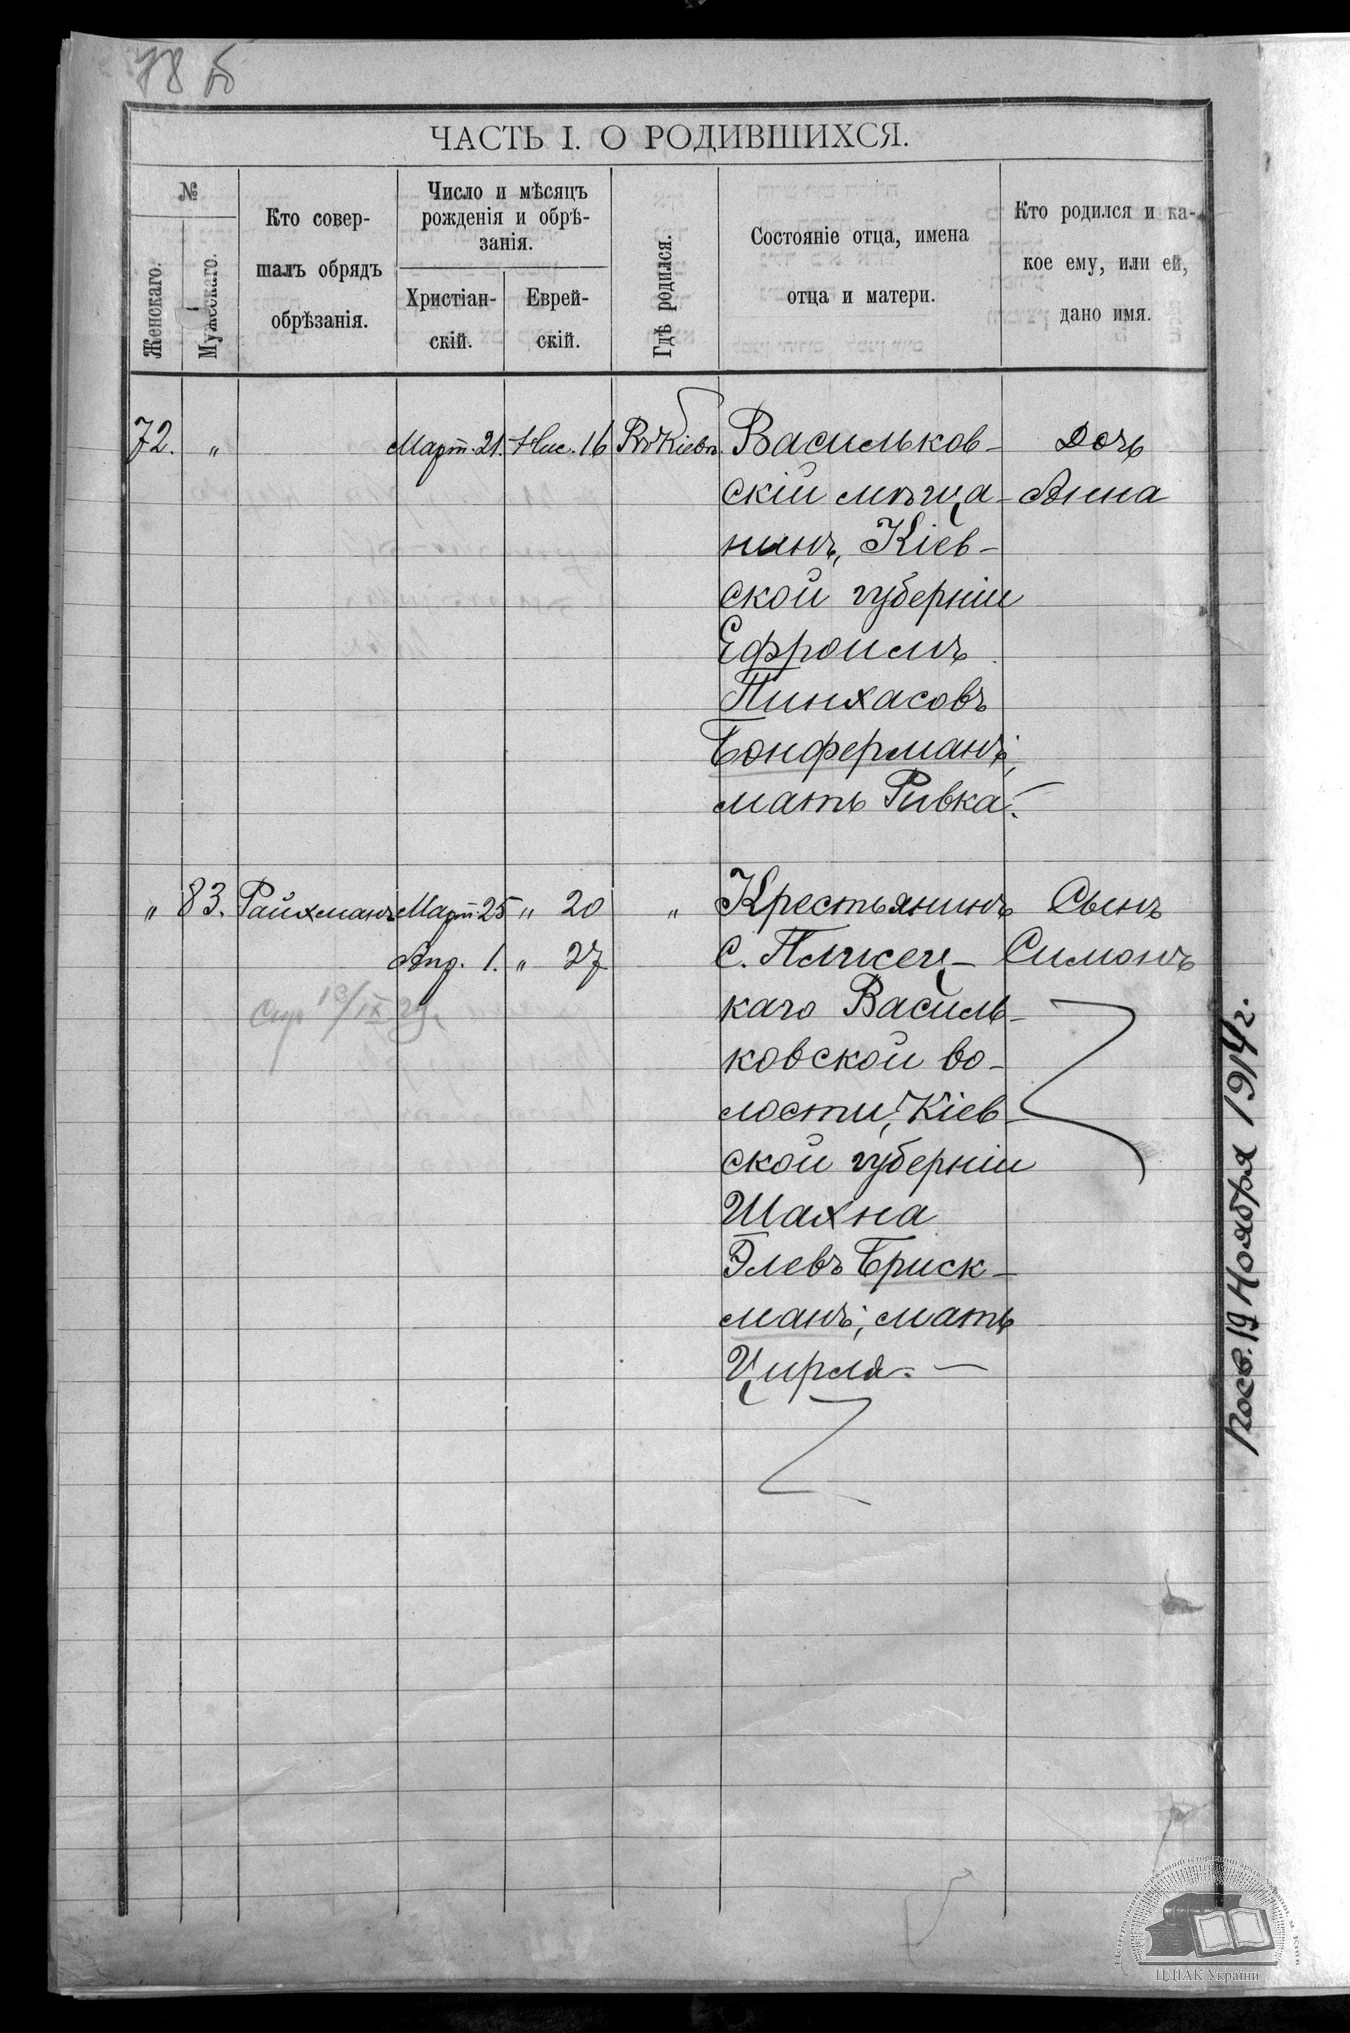 78 б
ЧАСТЬ I. О РОДИВШИХСЯ.
№
Женскаго.
Мужескаго.
Кто совер-
шалъ обрядъ
обрѣзанія.
Число и мѣсяцъ
рожденія и обрѣ-
занія.
Христіан-
скій.
Еврей-
скій.
Гдѣ родился.
Состояніе отца, имена
отца и матери.
Кто родился и ка-
кое ему, или ей,
дано имя.
72. " Март. 21. Нис. 16 Въ Кіевѣ. Васильков- Дочь
скій мѣща- Анна
нинъ, Кіев-
ской губерніи
Ефроимъ
Пинхасовъ
Бонферманъ;
мать Ривка.
" 83. Райхманъ Март 25 " 20 " Крестьянинъ Сынъ
Апр. 1. " 27 с. Плисец- Симонъ
каго Василь-
ковской во-
лости, Кіев-
ской губерніи
Шахна
Элевъ Бриск-
манъ; мать
Цирля.
13/IX 29
19 Ноября 1914 г.
ЦДІАК України